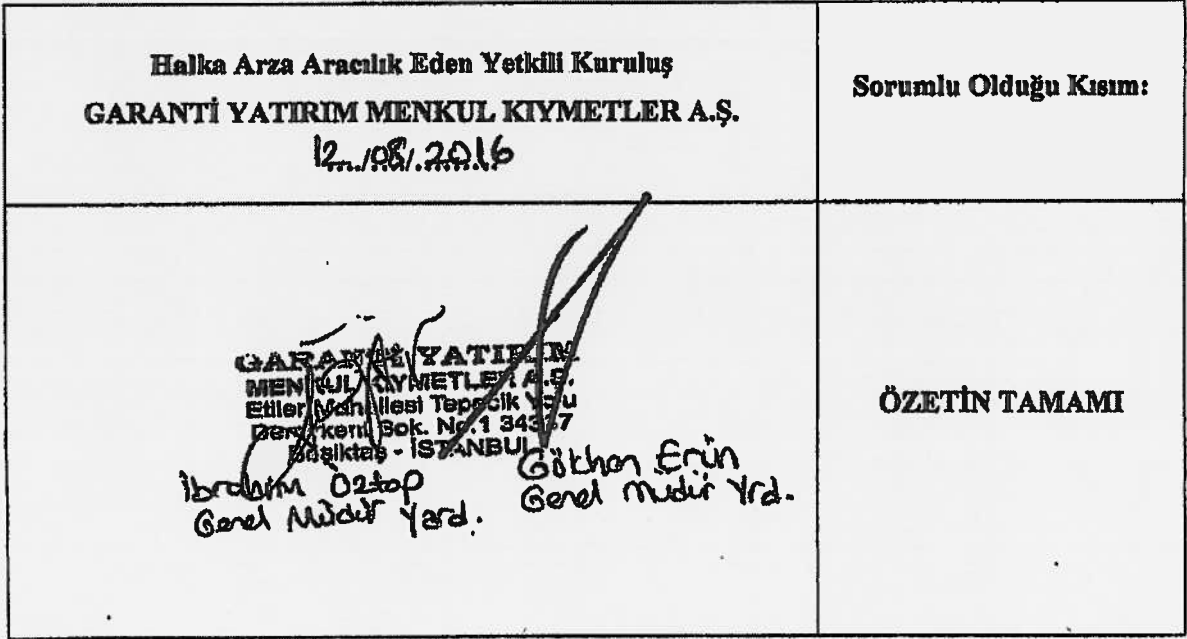 Halka Arza Aracılık Eden Yetkili Kuruluş
GARANTİ YATIRIM MENKUL KIYMETLER A.Ş.
12../08/.2016
Sorumlu Olduğu Kısım:
GARANTİ YATIRIM
MENKUL KIYMETLER A.Ş.
Etiler Mahallesi Tepecik Yolu
Sok. No.1 34337
Beşiktaş - İSTANBUL
İbrahim Öztop
Genel Müdür Yard.
Gökhan Erün
Genel Müdür Yrd.
ÖZETİN TAMAMI